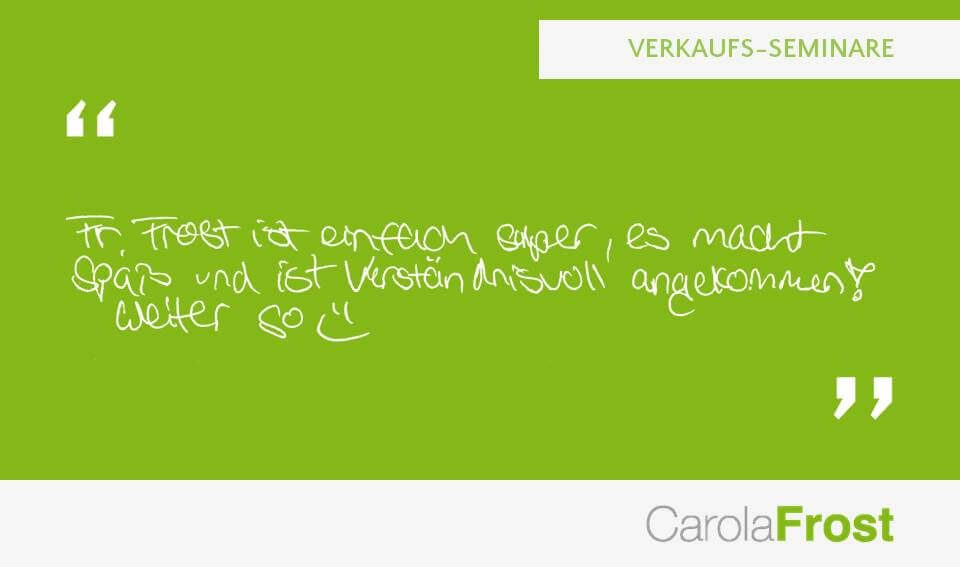 VERKAUFS-SEMINARE
“
Fr. Frost ist einfach super, es macht
Spaß und ist Verständnisvoll angekommen!
Weiter so
”
CarolaFrost